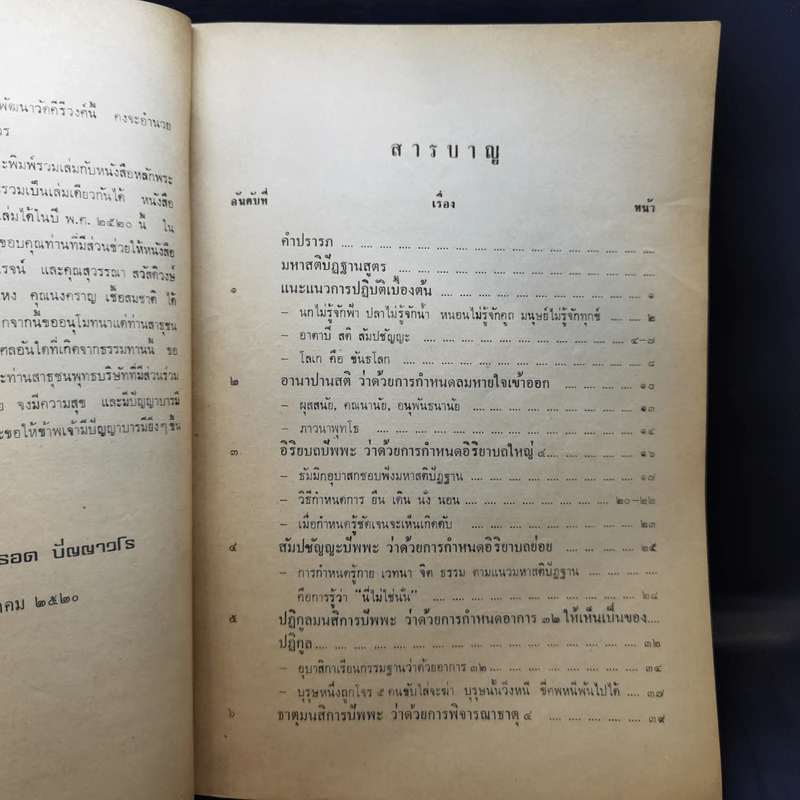 พัฒนาวัดคีรีวงศ์นี้ คงจะอำนวย
วร
ะพิมพ์รวมเล่มกับหนังสือหลักพระ
รวมเป็นเล่มเดียวกันได้ หนังสือ
ล่มได้ในปี พ.ศ. ๒๕๒๐ นี้ ใน
ขอบคุณท่านที่มีส่วนช่วยให้หนังสือ
โรจน์ และคุณสุวรรณา สวัสดิวงษ์
หง คุณนงคราญ เชื้อสมชาติ ได้
กจากนี้ขออนุโมทนาแด่ท่านสาธุชน
ศลอันใดที่เกิดจากธรรมทานนี้ ขอ
ะท่านสาธุชนพุทธบริษัทที่มีส่วนร่วม
ย จงมีความสุข และมีปัญญาบารมี
ะขอให้ข้าพเจ้ามีปัญญาบารมียิ่งๆ ขึ้น
รอด ปัญญาวโร
าคม ๒๕๒๐
สารบาญ
อันดับที่ เรื่อง หน้า
คำปรารภ .... .... .... .... .... .... .... .... .... .... .... .... .... ....
มหาสติปัฏฐานสูตร .... .... .... .... .... .... .... .... .... .... .... ....
๑ แนะแนวการปฏิบัติเบื้องต้น .... .... .... .... .... .... .... .... .... ๑
– นกไม่รู้จักฟ้า ปลาไม่รู้จักน้ำ หนอนไม่รู้จักคูถ มนุษย์ไม่รู้จักทุกข์ .... .... ๒
– อาตาปี สติ สัมปชัญญะ .... .... .... .... .... .... .... .... .... ๔–๗
– โลเก คือ ขันธโลก .... .... .... .... .... .... .... .... .... .... ๘
๒ อานาปานสติ ว่าด้วยการกำหนดลมหายใจเข้าออก .... .... .... .... ๑๐
– ผุสสนัย, คณนานัย, อนุพันธนานัย .... .... .... .... .... .... .... .... ๑๓
– ภาวนาพุทโธ .... .... .... .... .... .... .... .... .... .... .... ๑๔
๓ อิริยบถปัพพะ ว่าด้วยการกำหนดอิริยาบถใหญ่ ๔.... .... .... .... .... ๑๖
– ธัมมิกอุบาสกชอบฟังมหาสติปัฏฐาน .... .... .... .... .... .... .... ๑๗
– วิธีกำหนดการ ยืน เดิน นั่ง นอน .... .... .... .... .... .... .... ๒๐–๒๒
– เมื่อกำหนดรู้ชัดเจนจะเห็นเกิดดับ .... .... .... .... .... .... .... .... ๒๓
๔ สัมปชัญญะปัพพะ ว่าด้วยการกำหนดอิริยาบถย่อย .... .... .... .... ๒๕
– การกำหนดรู้กาย เวทนา จิต ธรรม ตามแนวมหาสติปัฏฐาน .... .... .... ....
คือการรู้ว่า “นี่ไม่ใช่นั่น” .... .... .... .... .... .... .... .... .... ๒๘
๕ ปฏิกูลมนสิการปัพพะ ว่าด้วยการกำหนดอาการ ๓๒ ให้เห็นเป็นของ....
ปฏิกูล.... .... .... .... .... .... .... .... .... .... .... .... .... .... ๓๒
– อุบาสิกาเรียนกรรมฐานว่าด้วยอาการ ๓๒ .... .... .... .... .... .... .... ๓๔
– บุรุษหนึ่งถูกโจร ๕ คนขับไล่จะฆ่า บุรุษนั้นวิ่งหนี ขี่ศพหนีพ้นไปได้ .... ๓๗
๖ ธาตุมนสิการปัพพะ ว่าด้วยการพิจารณาธาตุ ๔ .... .... .... .... .... ๓๙